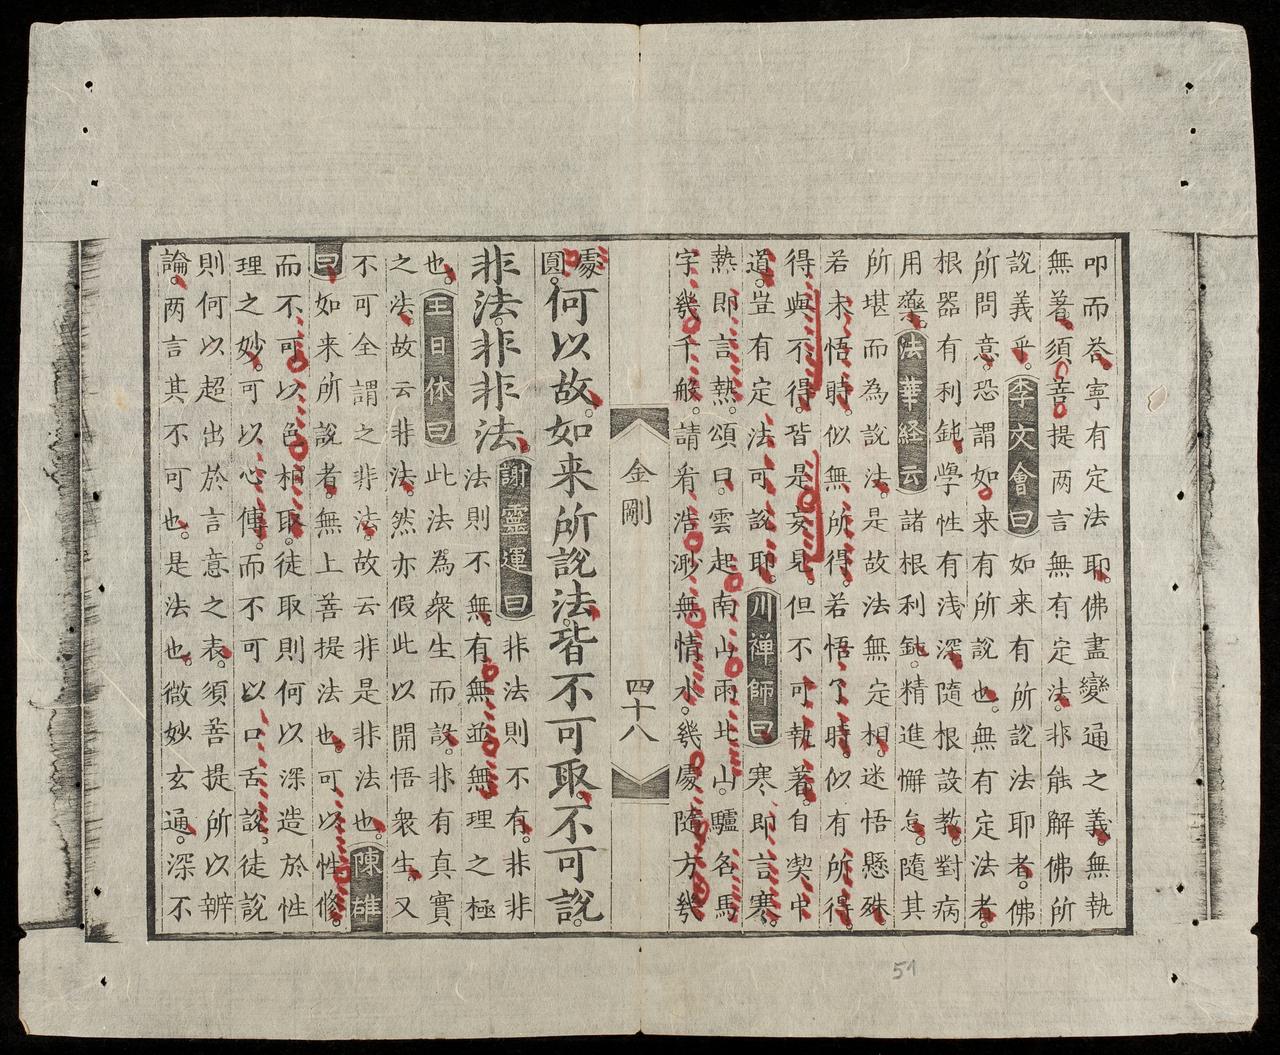 叩而荅寧有定法耶。佛盡變通之義。無執
無著。須菩提两言無有定法。非能解佛所
說義乎。李文會曰如来有所說法耶者。佛
所問意。恐謂如来有所說也。無有定法者。
根器有利鈍。學性有浅深。隨根設教。對病
用藥。法華経云諸根利鈍。精進懈怠。隨其
所堪而為說法。是故法無定相。迷悟懸殊。
若未悟時。似無所得。若悟了時。似有所得。
得與不得。皆是妄見。但不可執著。自契中
道。豈有定法可說耶。川禅師曰寒即言寒。
熱即言熱。頌曰。雲起南山雨北山。驢名馬
字幾千般。請看浩渺無情水。幾處隨方幾
金剛
四十八
處
圓。何以故。如来所說法。皆不可取。不可說。
非法。非非法。謝靈運曰非法則不有。非非
法則不無。有無並無。理之極
也。王日休曰此法為衆生而設。非有真實
之法。故云非法。然亦假此以開悟衆生。又
不可全謂之非法。故云非是非法也。陳雄
曰如来所說者。無上菩提法也。可以性脩。
而不可以色相取。徒取則何以深造於性
理之妙。可以心傳。而不可以口舌說。徒說
則何以超出於言意之表。須菩提所以辨
論。两言其不可也。是法也。微妙玄通。深不
51